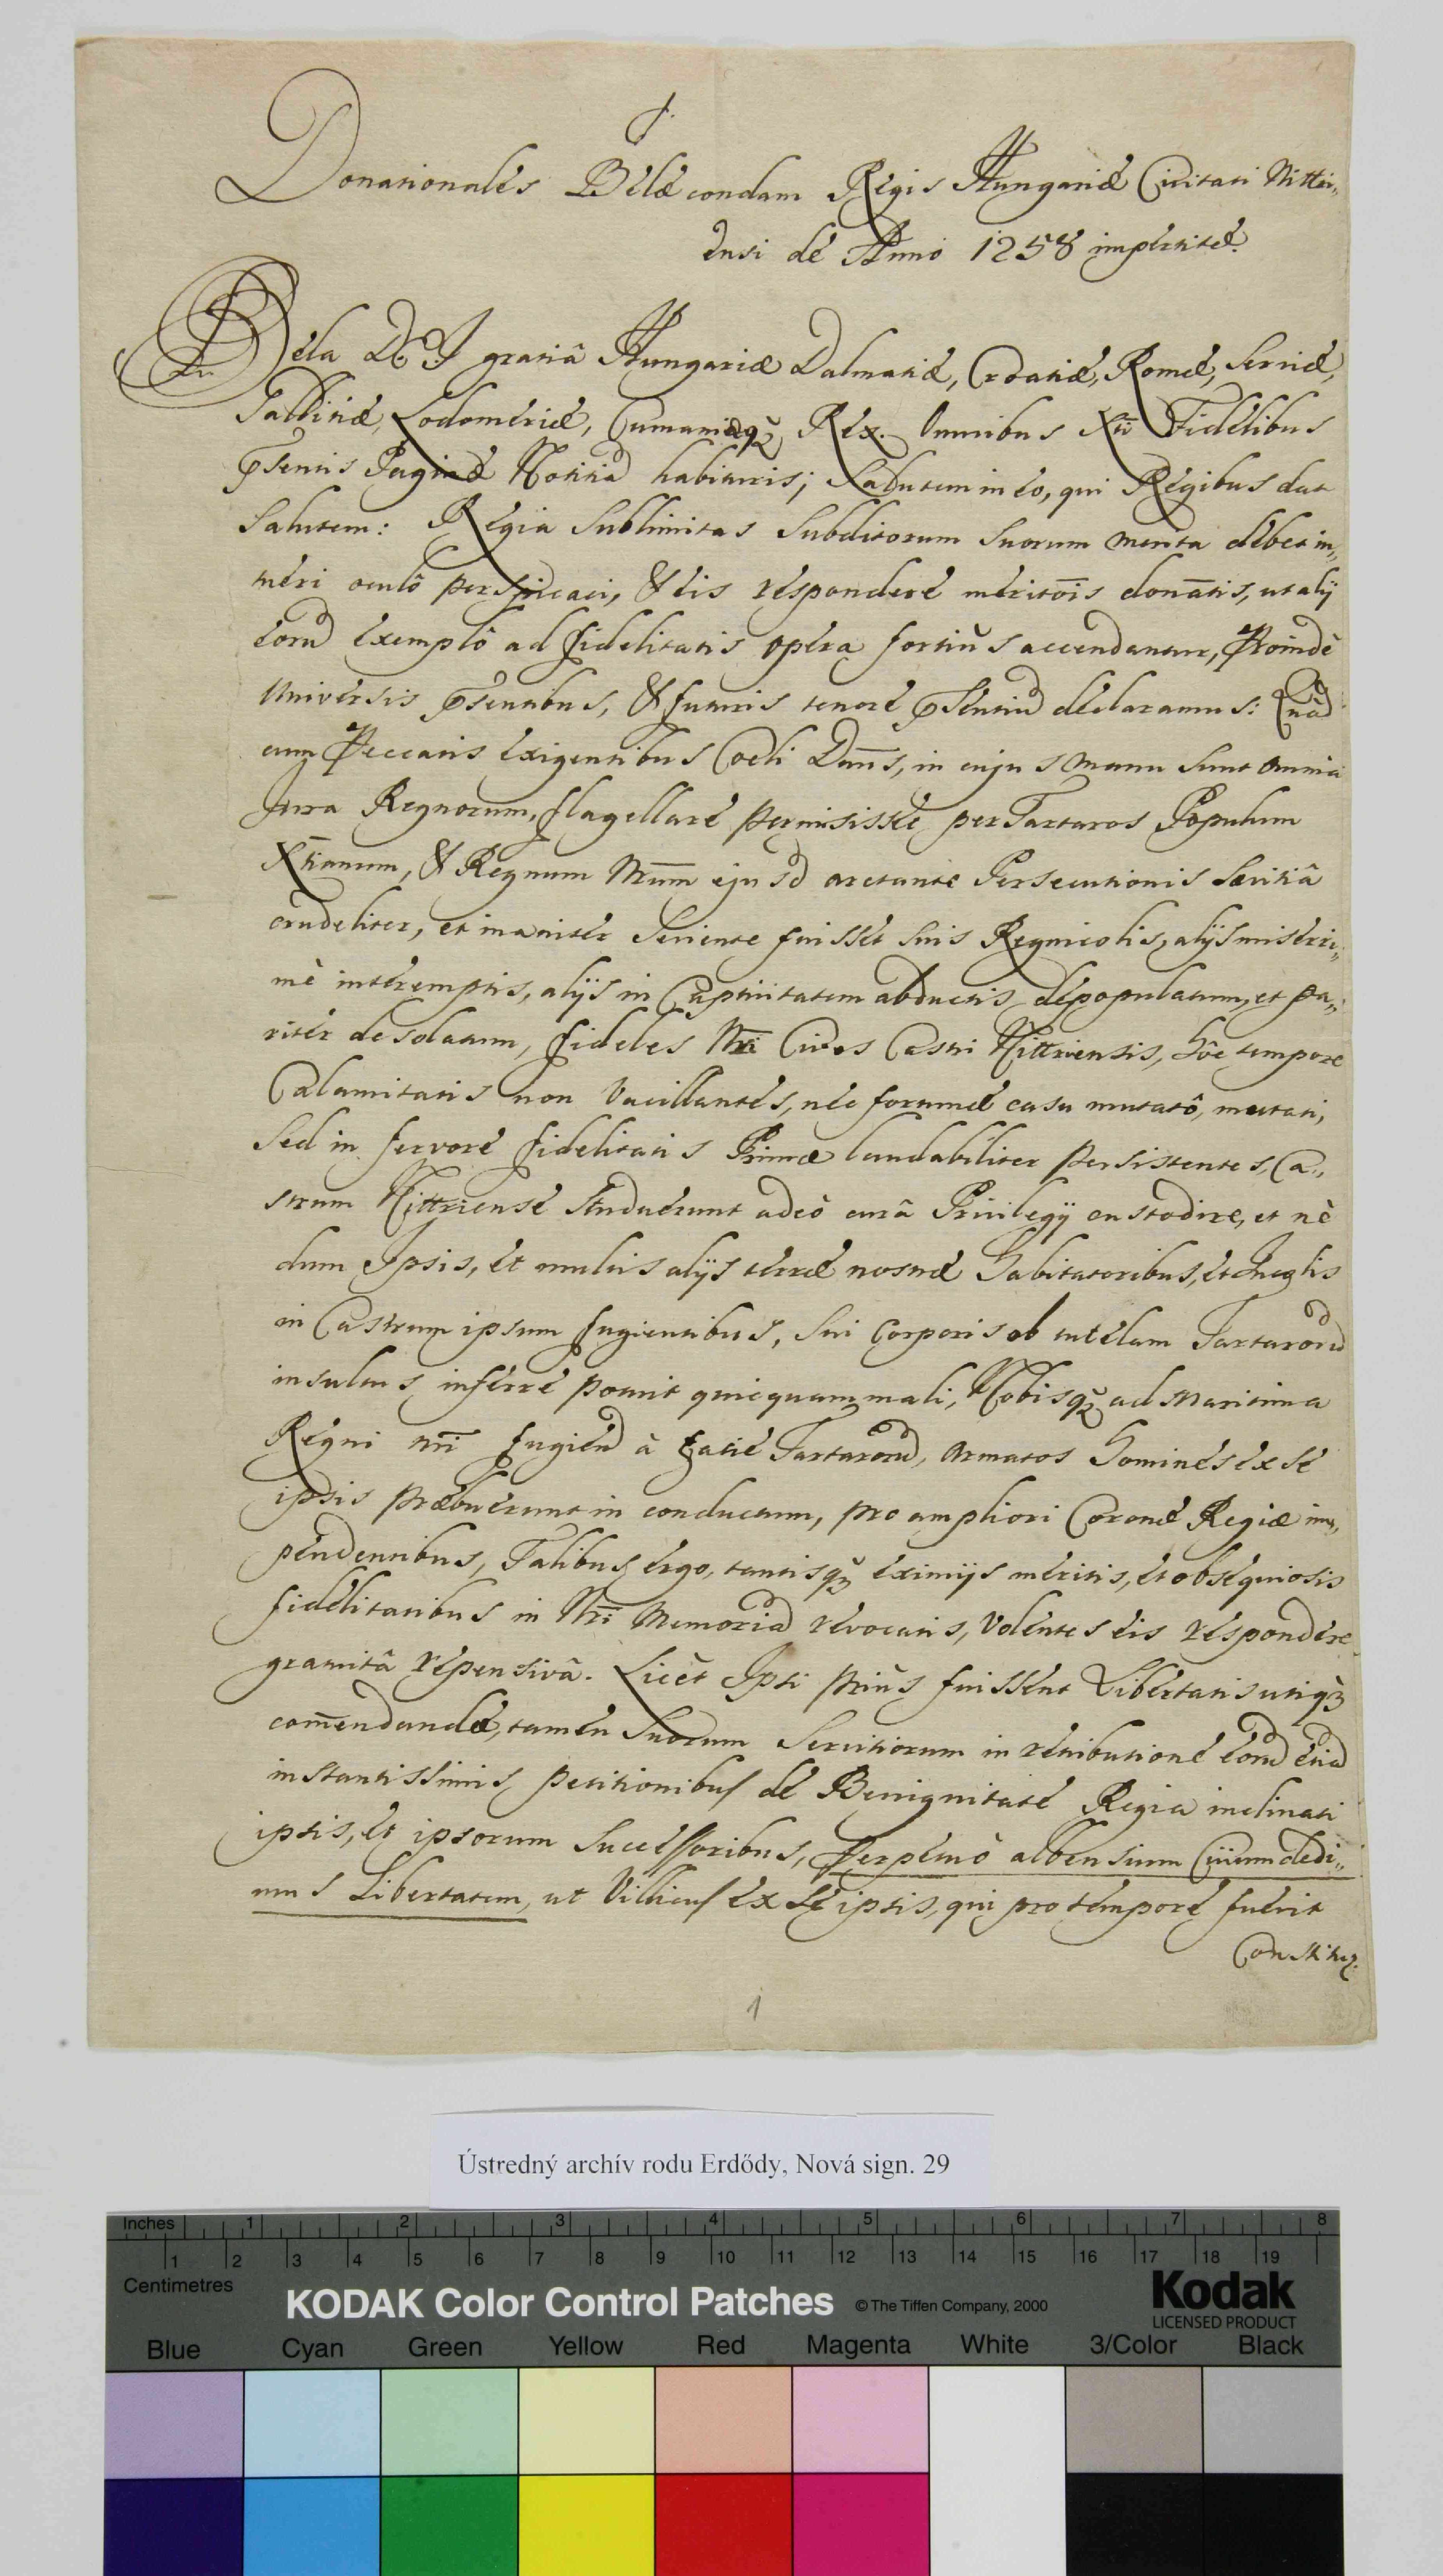 J.
Donationales Belæ condam Regis Hungariæ Civitati Nittri„
ensi de Anno 1258 impertitæ.
Bela D. G. gratiâ Hungariæ Dalmatiæ, Croatiæ, Romæ, Serviæ,
Gallitiæ, Lodomeriæ, Cumaniæq3 Rex. Omnibus Xti Fidelibus
Psentis Paginæ Notitia habituris; Salutem in eo, qui Regibus dat
Salutem: Regia Sublimitas Subditorum Suorum merita debet in„
tueri oculô perspicaci, & eis respondere meritois donatis, ut alij
eorum exemplô ad fidelitatis opera fortiùs accendantur, Proindè
Universis Psentibus, & futuris tenore Psentium declaramus: Quòd
cum Peccatis exigentibus Coeli Dnns, in cujus manu sunt omnia
Jura Regnorum, flagellare permisisse per Tartaros Populum
Xtianum, & Regnum Nrum ejusd arctante Persecutionis Sævitiâ
crudeliter, et inaniter Seviente fuisset suis Regnicolis, alijs miserri„
mè interemptis, alijs in Captivitatem abductis depopulatum, et pa„
riter desolatum, fideles Nri Cives Castri Nittriensis, hôc tempore
Calamitatis non Vacillantes, nec fortunæ casu mutatô, mutati,
Sed in fervore fidelitatis Primæ laudabiliter persistentes, Ca„
strum Nittriense Studuerunt adeò curâ Privilegij custodire, et nè
dum Ipsis, et multis alijs terræ nostræ Habitatoribus, et
in Castrum ipsum fugientibus, Sui Corporis ob tutelam Tartarorum
insultus inferre potuit quicquam mali, Nobisq3 ad Maritima
Regni nri fugien à facie Tartarorum, armatos Homines ex se
ipsis præbuerunt in conductum, pro ampliori Coronæ Regiæ im„
pendentibus, Talibus ergo, tantisq3 eximijs meritis, et obsequiosis
fidelitatibus in Nri Memoriam revocatis, Volentes eis respondere
gratuitâ repensivâ. Licèt Ipsi priùs fuissent Libertatis utiq3
comendandæ, tamen Suorum Servitiorum in retributione eorum etiam
instantissimis petitionibus de Benignitate Regia inclinati
ipsis, et ipsorum Successoribus, perpetuò albensium Civium dedi„
mus Libertatem, ut Villicus ex se ipsis, qui pro tempore fuerit
1
Ústredný archív rodu Erdődy, Nová sign. 29
Inches 1 2 3 4 5 6 7 8
1 2 3 4 5 6 7 8 9 10 11 12 13 14 15 16 17 18 19
Centimetres
KODAK Color Control Patches © The Tiffen Company, 2000 Kodak
LICENSED PRODUCT
Blue Cyan Green Yellow Red Magenta White 3/Color Black